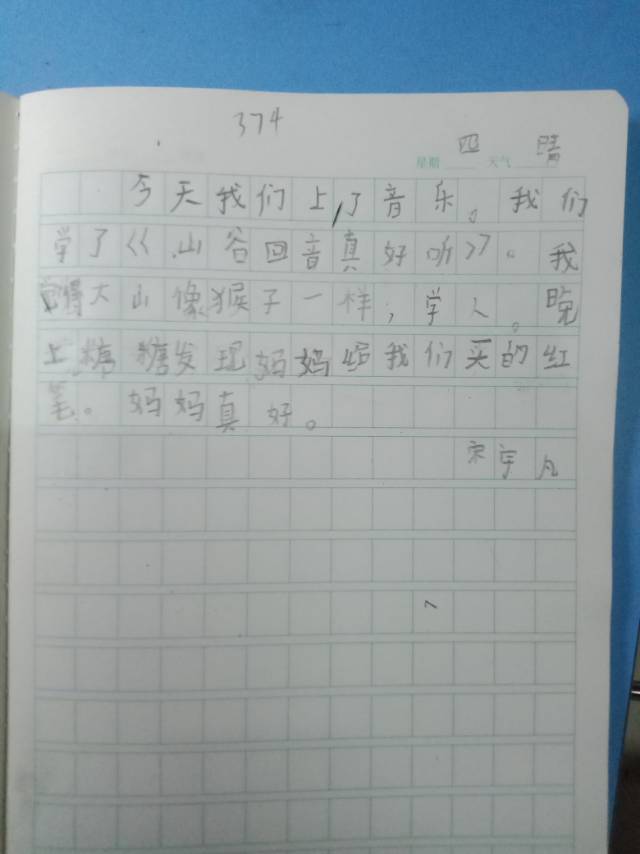 374
星期 四 天气 晴
今天我们上了音乐。我们
学了《山谷回音真好听》。我
觉得大山像猴子一样，学人。晚
上糖糖发现妈妈给我们买的红
笔。妈妈真好。
宋宇凡